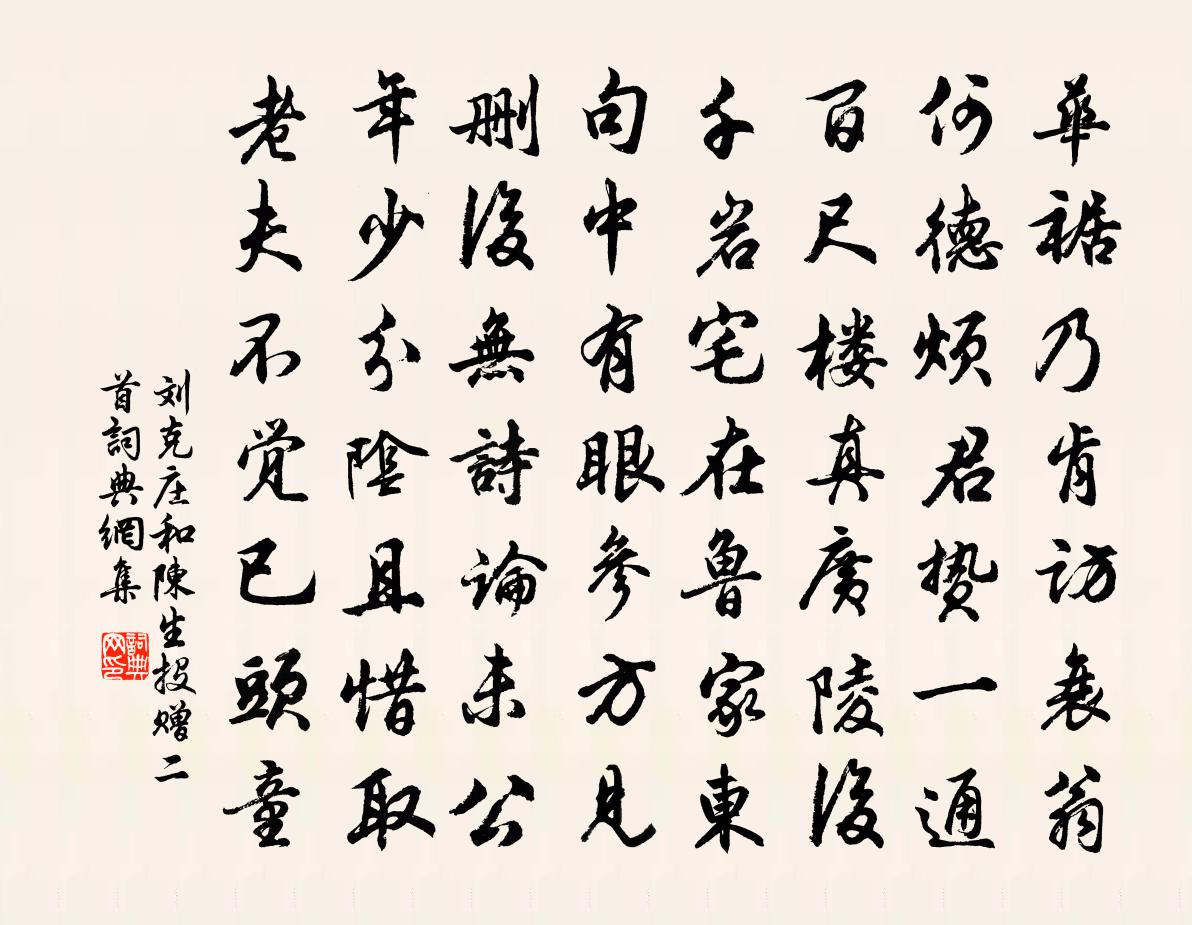 華裾乃肯訪衰翁
何德煩君贽一通
百尺楼真廣陵後
千岩宅在鲁家東
句中有眼參方見
删後無詩論未公
年少分陰且惜取
老夫不觉已頭童
刘克庄和陳生投赠二
首詞典網集
詞典
网印